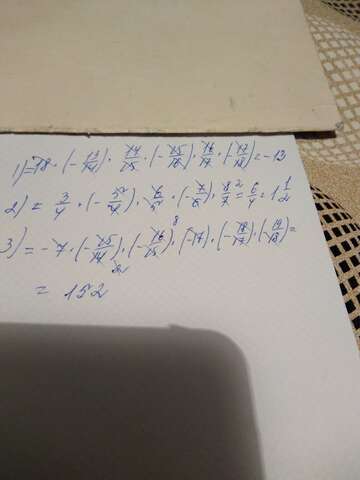 1) = 18 · (- 13/14) · 14/15 · (- 15/16) · 16/17 · (- 17/18) = - 13
2) = 3/4 · (- 5/4) · 6/5 · (- 7/6) · 8/7 = 6/4 = 1 1/2
3) = - 7 · (- 15/14) · (- 16/15) · (-17) · (- 18/17) · (- 19/18) =
= 152